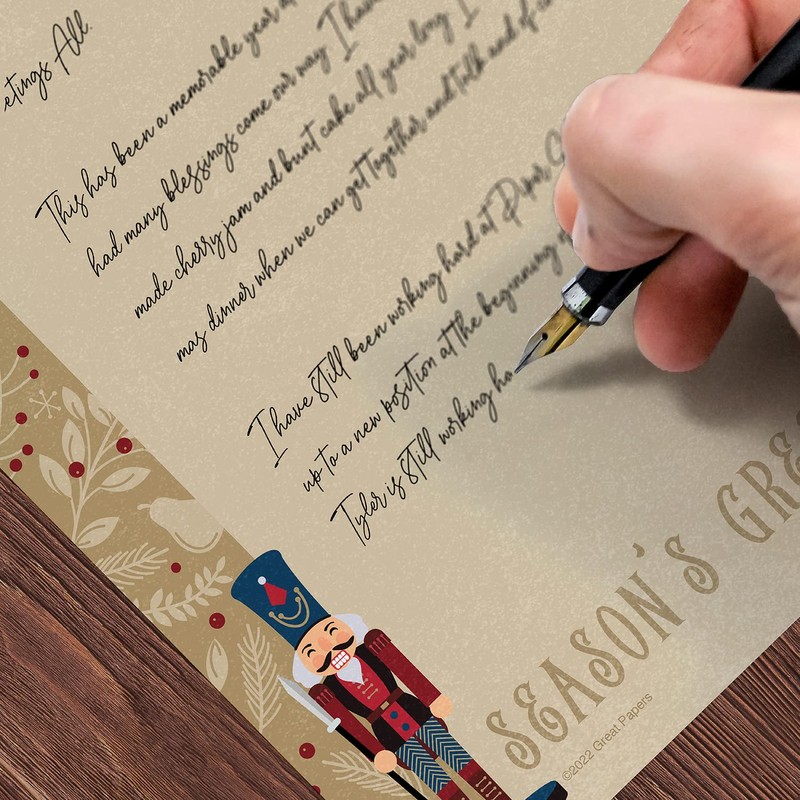 etings All
This has been a memorable year
had many blessings come our way I have
made cherry jam and bunt cake all year long I
mas dinner when we can get together and talk and
I have still been working hard at Piper
up to a new position at the beginning
Tyler is still working ha
SEASON'S GRE
©2022 Great Papers